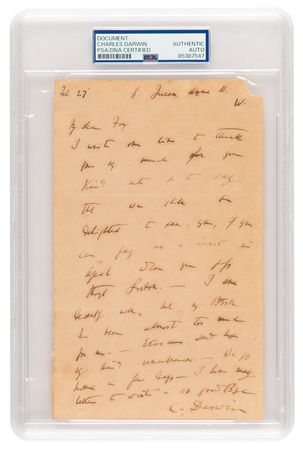 DOCUMENT
CHARLES DARWIN
PSA/DNA CERTIFIED
PSA
AUTHENTIC
AUTO
85387547
Feb 27
6. Queen Anne
W.
My dear Fox
I write one line to thank
you very much for your
kind note & to say
that we shall be
delighted to see you, if you
can pay us a visit in
April when you pass
through London. — I am
well, but my
has been almost too much
for me. —
of kind — We go
home in a few days — I have many
letters to write — so good Bye
C. Darwin